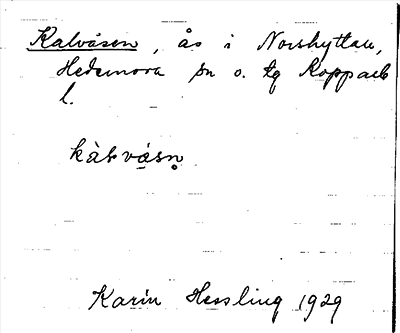 Kalvåsen, ås i Norshyttan,
Hedemora sn o. tg Kopparb
l.
kàlvåsn̥
Karin Hessling 1929